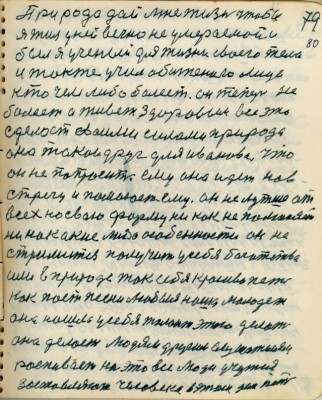 Природа дай мне жизнь чтобы 79
я жил у ней вечно не умераемой и 80
был я ученый для жизни своего тела
и также учил обиженого лица
кто чем либо болеет. он теперь не
болеет а живет здоровым все это
сделает своими силами природа
она такой друг для иванова, что
он не попросит ему она идет нав
стречу и помогает ему. он не лутше от
всех но свою форму ни как не поменяет
ни на какие либо особенности он не
стремится получить у себя богатства
или в природе так себя красиво петь
как поет песни любимая наша молодеж
она нашла у себя талант этого делать
она делает людям другим слушателям
роспивает на это все люди учутся
заставляют человека в этом петь